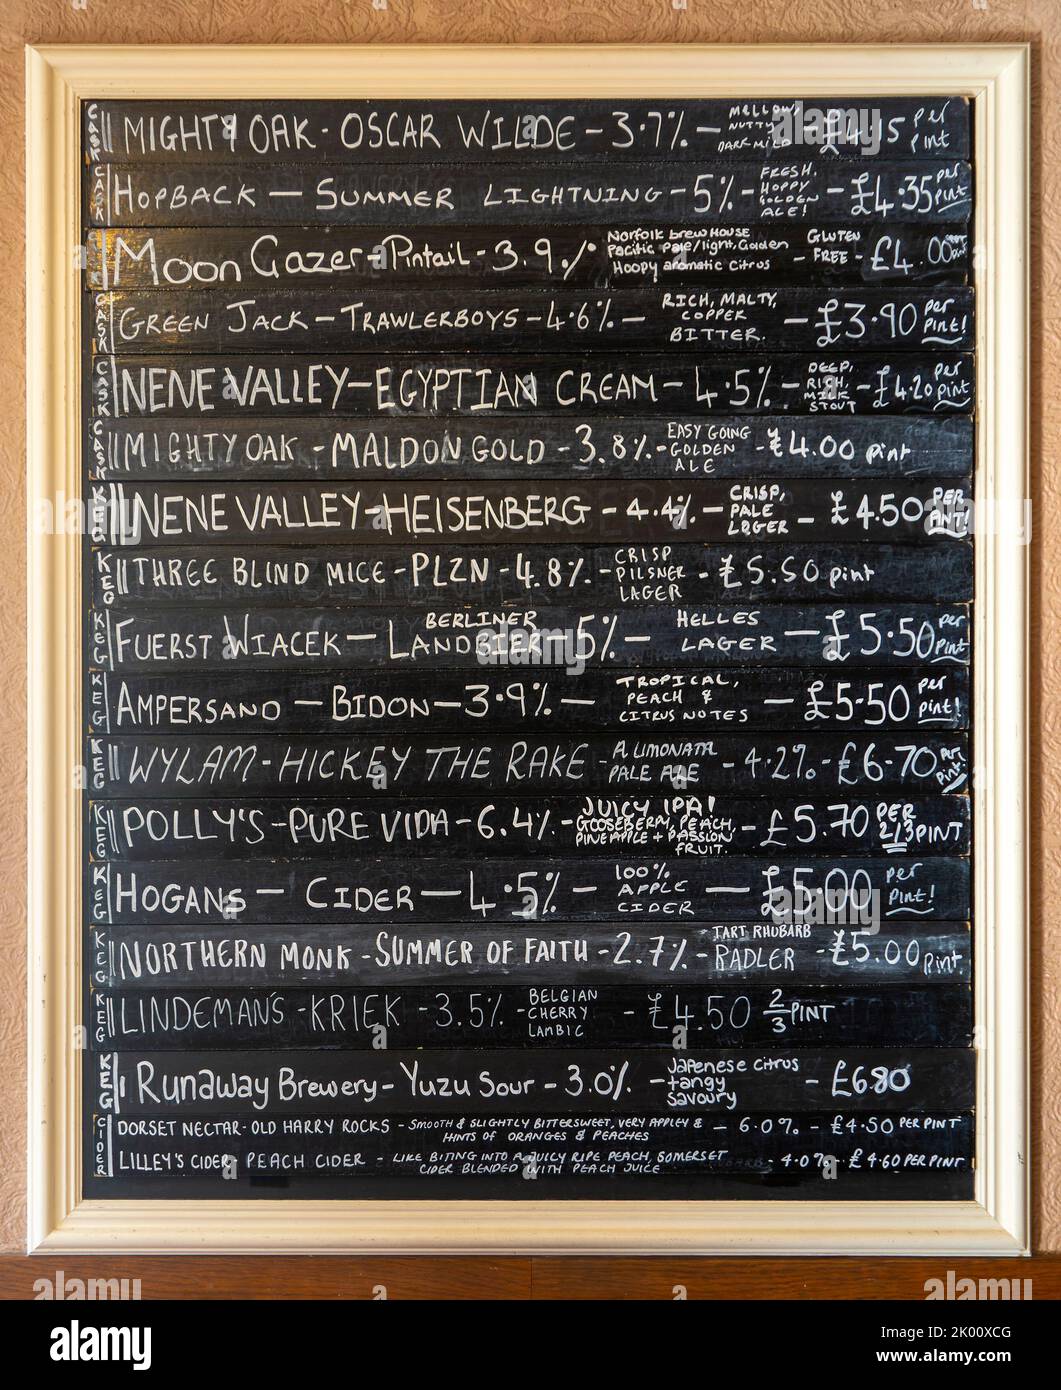 CASK MIGHTY OAK - OSCAR WILDE - 3.7% - MELLOW, NUTTY DARK MILD - £4.15 per pint
CASK HOPBACK - SUMMER LIGHTNING - 5% - FRESH, HOPPY GOLDEN ALE! - £4.35 per pint
Moon Gazer - Pintail - 3.9% Norfolk Brewhouse Pacific Pale/light, Golden Hoopy aromatic citrus - GLUTEN FREE - £4.00
CASK GREEN JACK - TRAWLERBOYS - 4.6% - RICH, MALTY, COPPER BITTER. - £3.90 per pint!
CASK NENE VALLEY - EGYPTIAN CREAM - 4.5% - DEEP, RICH, MILK STOUT - £4.20 per pint
CASK MIGHTY OAK - MALDON GOLD - 3.8% - EASY GOING GOLDEN ALE - £4.00 pint
KEG NENE VALLEY - HEISENBERG - 4.4% - CRISP, PALE LAGER - £4.50 PER PINT!
KEG THREE BLIND MICE - PLZN - 4.8% - CRISP PILSNER LAGER - £5.50 pint
KEG FUERST WIACEK - BERLINER LANDBIER - 5% - HELLES LAGER - £5.50 per pint
KEG AMPERSAND - BIDON - 3.9% - TROPICAL, PEACH & CITRUS NOTES - £5.50 per pint!
KEG WYLAM - HICKEY THE RAKE - A LIMONATA PALE ALE - 4.2% - £6.70 per pint!
KEG POLLY'S - PURE VIDA - 6.4% - JUICY IPA! GOOSEBERRY, PEACH, PINEAPPLE + PASSION FRUIT. - £5.70 PER 2/3 PINT
KEG HOGANS - CIDER - 4.5% - 100% APPLE CIDER - £5.00 per pint!
KEG NORTHERN MONK - SUMMER OF FAITH - 2.7% - TART RHUBARB RADLER - £5.00 pint
KEG LINDEMAN'S - KRIEK - 3.5% - BELGIAN CHERRY LAMBIC - £4.50 2/3 PINT
KEG RUNAWAY BREWERY - YUZU SOUR - 3.0% - Japenese citrus tangy savoury - £6.80
CIDER DORSET NECTAR - OLD HARRY ROCKS - SMOOTH & SLIGHTLY BITTERSWEET, VERY APPLEY & HINTS OF ORANGES & PEACHES - 6.0% - £4.50 PER PINT
LILLEY'S CIDER - PEACH CIDER - LIKE BITING INTO A JUICY RIPE PEACH, SOMERSET CIDER BLENDED WITH PEACH JUICE - 4.0% - £4.60 PER PINT
alamy
Image ID: 2K00XCG
www.alamy.com